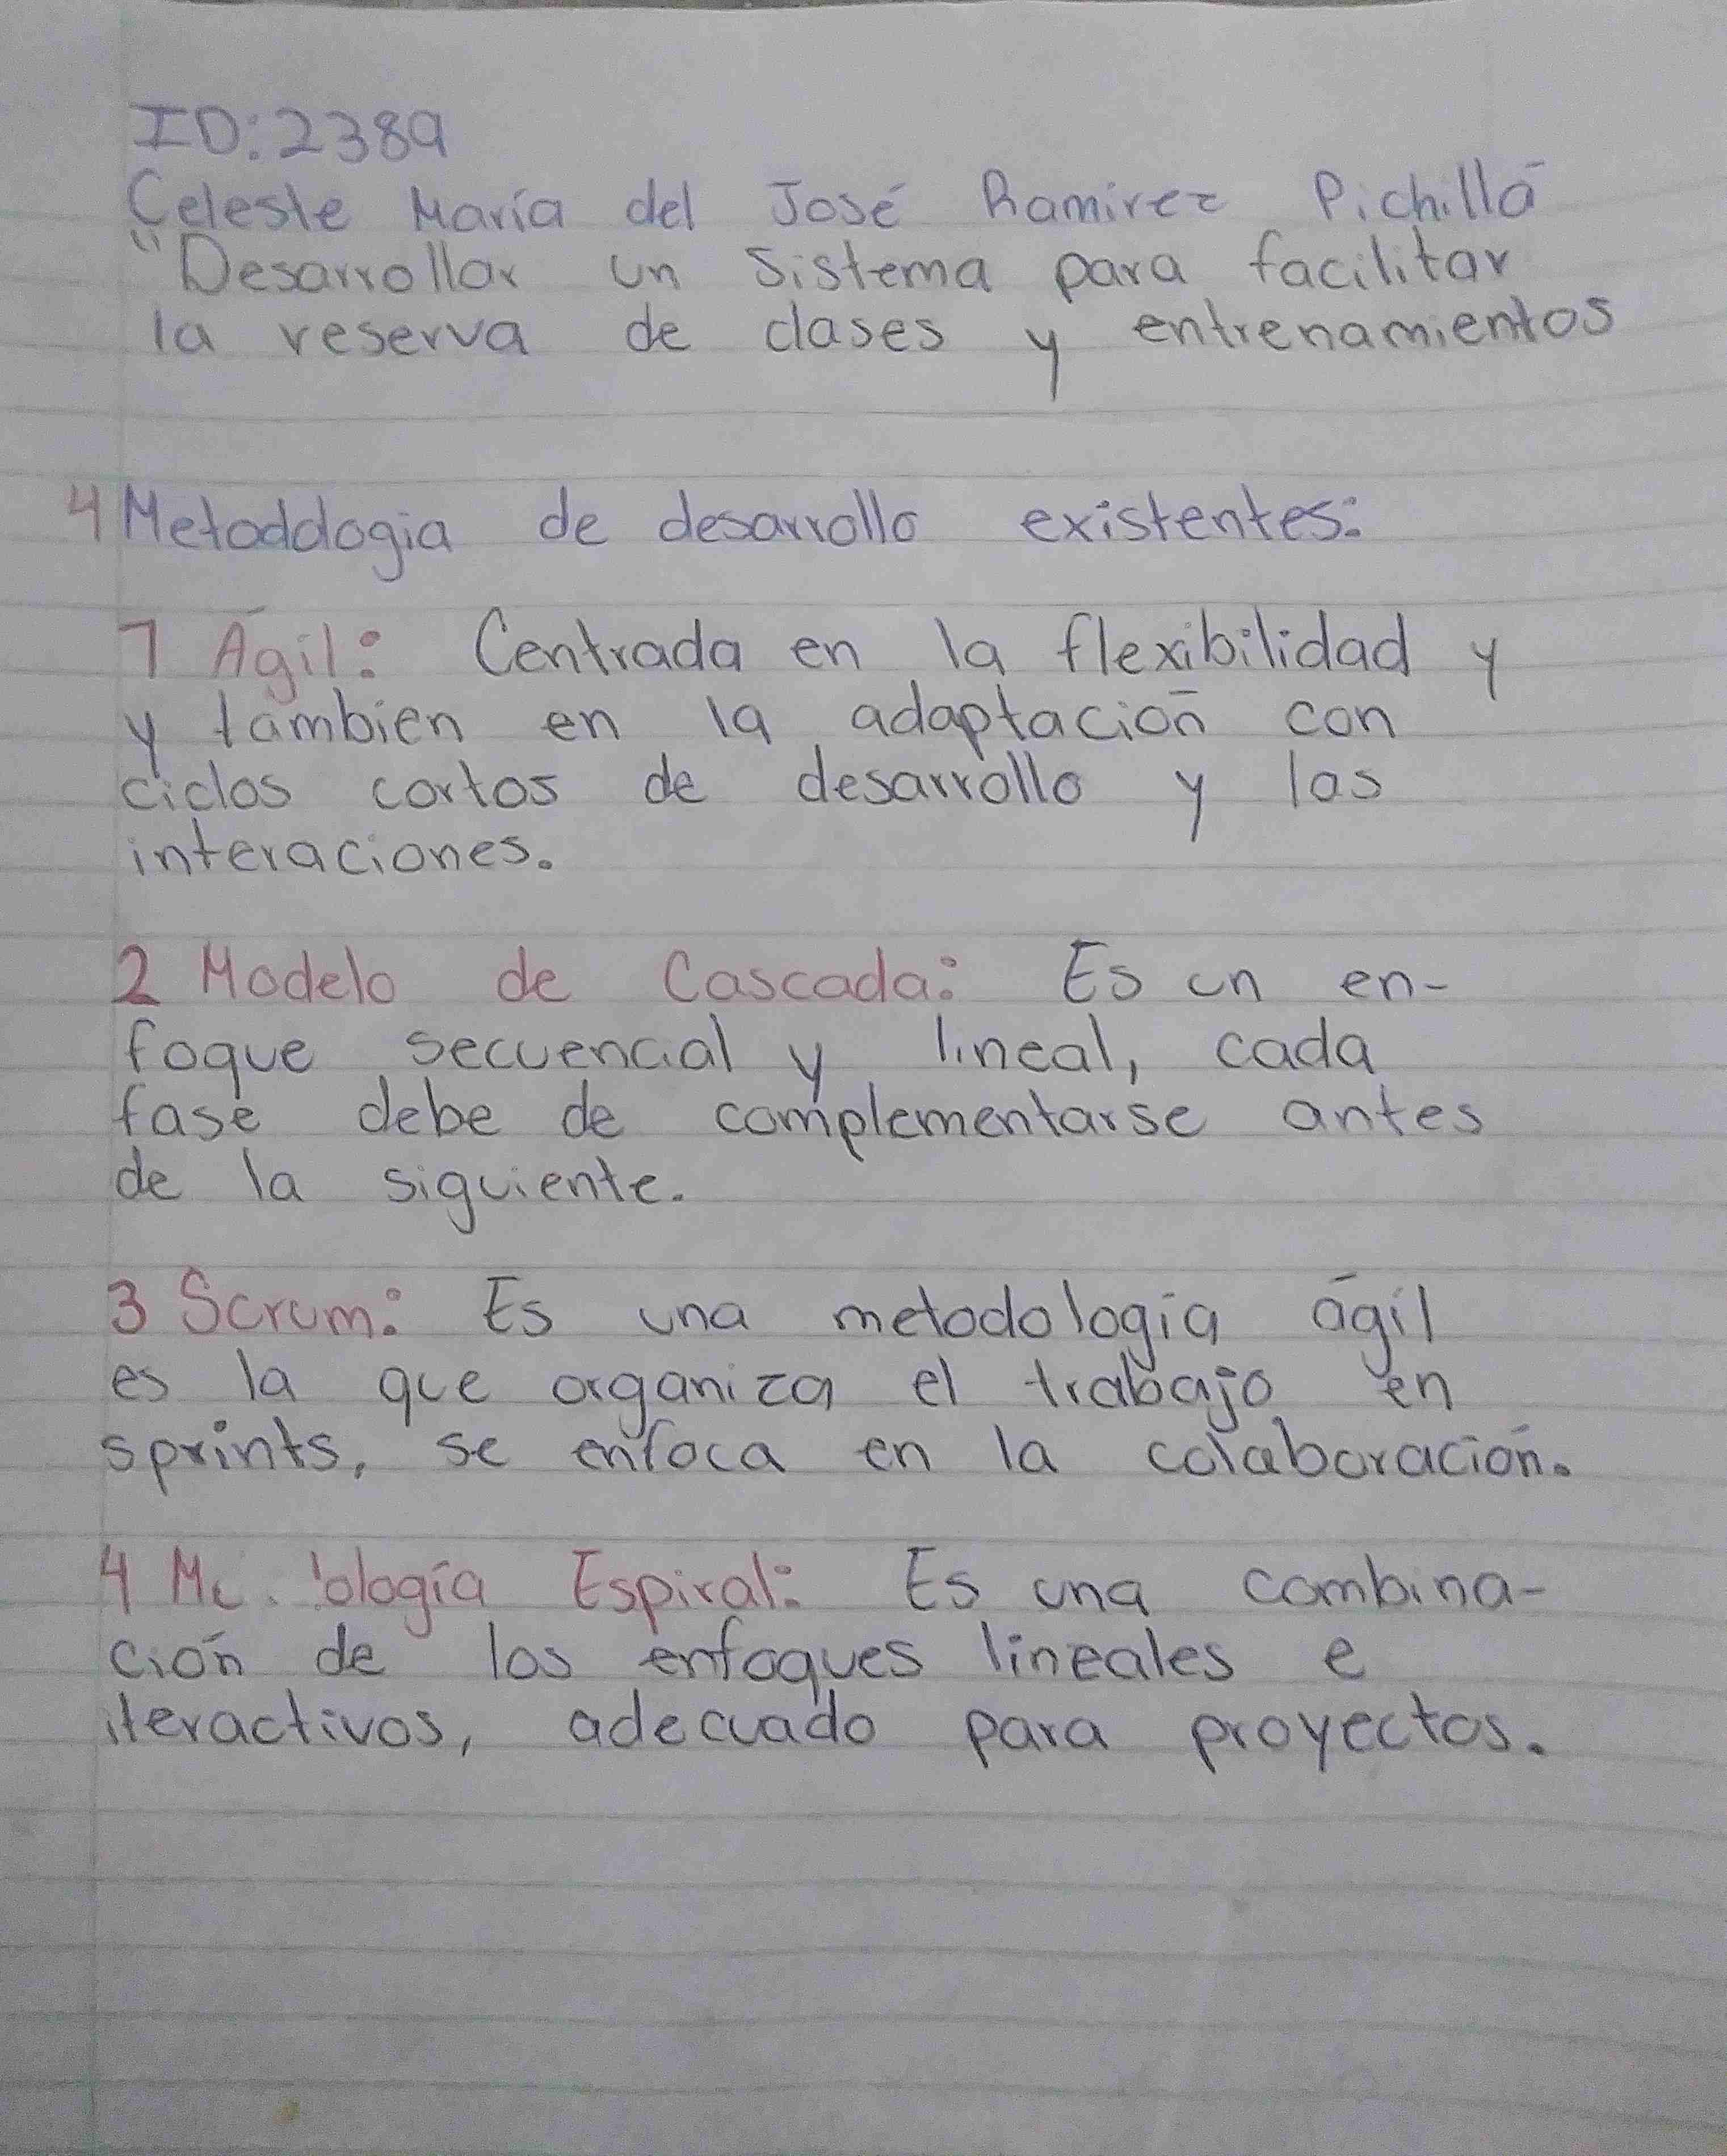 ID:2389
Celeste María del José Ramirez Pichillá
"Desarrollar un Sistema para facilitar
la reserva de clases y entrenamientos
4 Metoddogia de desarrollo existentes:
1 Ágil: Centrada en la flexibilidad y
y tambien en la adaptación con
ciclos cortos de desarrollo y las
interaciones.
2 Modelo de Cascada: Es un en-
foque secuencial y lineal, cada
fase debe de complementarse antes
de la siguiente.
3 Scrum: Es una metodología ágil
es la que organiza el trabajo en
sprints, se enfoca en la colaboración.
4 Espiral: Es una combina-
ción de los enfoques lineales e
iteractivos, adecuado para proyectos.